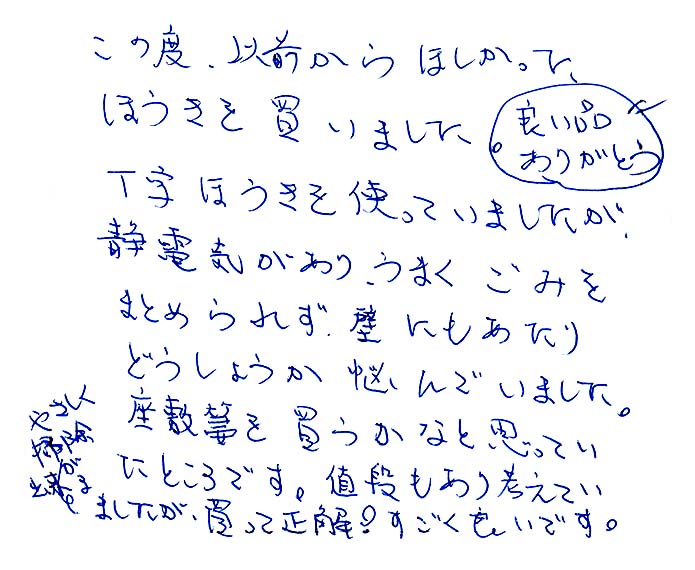 この度、以前からほしかった、
ほうきを買いました。
良い品
ありがとう
T字ほうきを使っていましたが、
静電気があり、うまくごみを
まとめられず、壁にもあたり
どうしょうか悩んでいました。
座敷箒を買うかなと思ってい
たところです。値段もあり考えてい
ましたが、買って正解?すごく良いです。
やさしく
掃除
が
出来る。